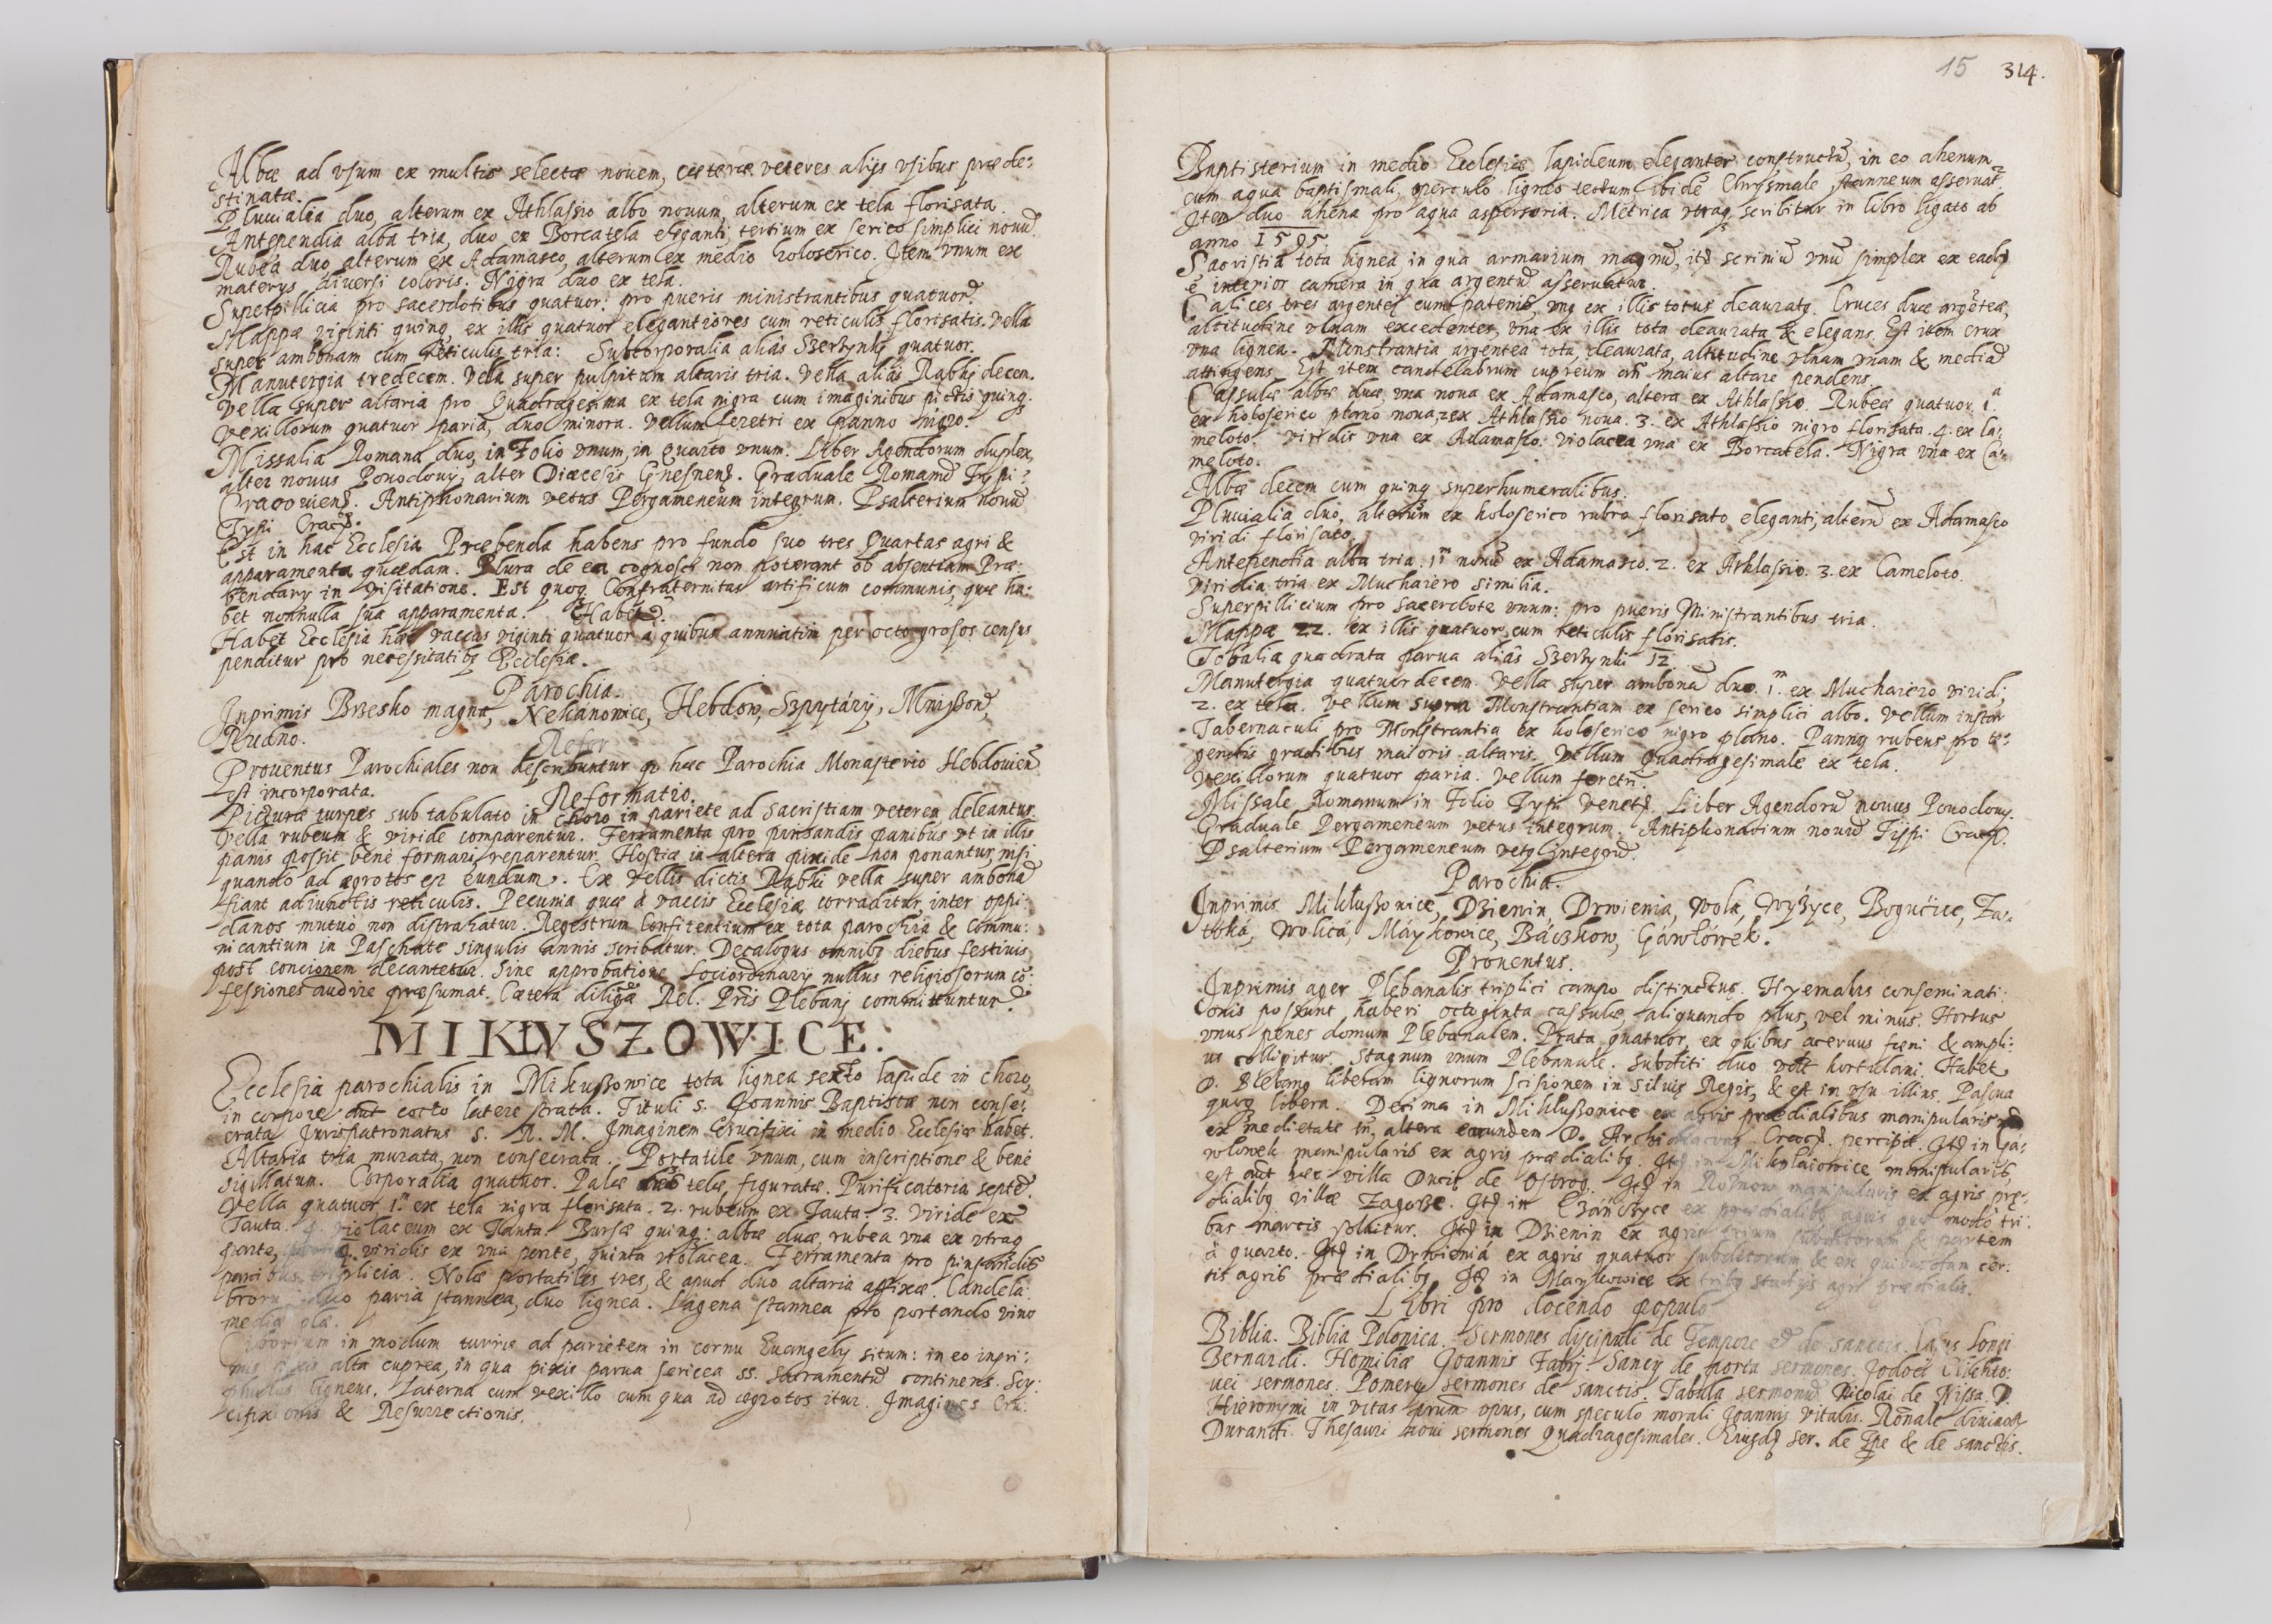 Albæ ad vsum ex multis selectæ nouem, cæteræ veteres alijs vsibus præde:
stinatæ.
Pluuialia duo, alterum ex Athlassio albo nouum, alterum ex tela florisata.
Antependia alba tria, duo ex Borcatela eleganti, tertium ex serico simplici nouũ.
Rubea duo, alterum ex Adamasco, alterum ex medio holoserico. Item vnum ex
materys diuersi coloris. Nigra duo ex tela.
Superpillicia pro sacerdotibus quatuor: pro pueris ministrantibus quatuor.
Mappæ viginti quinq, ex illis quatuor elegantiores cum reticulis florisatis. Vella
super ambonam cum reticulis tria: Subcorporalia aliâs Szerzynki quatuor.
Manutergia tredecem. Vela super pulpitum altaris tria. Vella aliâs Rąbki decem.
Vella super altaria pro Quadragesima ex tela nigra cum imaginibus pictis quinq.
Vexillorum quatuor paria, duo minora. Vellum feretri ex panno nigro.
Missalia Romana duo, in Folio vnum, in quarto vnum. Liber Agendorum duplex,
alter nouus Powodowij, alter Diæcesis Gnesnens. Graduale Romanũ Typi
Cracouiens. Antiphonarium vetus Pergameneum integrum. Psalterium nouũ
Typi Crac.
Est in hac Ecclesia Præbenda habens pro fundo suo tres Quartas agri &
apparamenta quædam. Plura de ea cognosci non poterant ob absentiam Præ:
bendary in visitatione. Est quoq Confraternitas artificum communis, quæ ha:
bet nonnulla sua apparamenta. Habet
Habet Ecclesia hæc vaccas viginti quatuor à quibus annuatim per octo grosos census
penditur pro necessitatibq Ecclesiæ.
Parochia.
Inprimis Brzesko magna, Nekanowice, Hebdow, Szpytáry, Mniszow,
Rudno.
Refor
Prouentus Parochiales non describuntur qa hæc Parochia Monasterio Hebdouien
est incorporata.
Reformatio.
Picturæ turpes sub tabulato in choro in pariete ad sacristiam veterem deleantur.
Vella rubeum & viride comparentur. Ferramenta pro pinsandis panibus vt in illis
panis possit benè formari, reparentur. Hostiæ in altera pixide non ponantur, nisi
quando ad ægrotos est eundum. Ex vellis dictis Rąbki vella super ambonã
fiant adiunctis reticulis. Pecunia quæ à vaccis Ecclesiæ corraditur, inter oppi:
danos mutuò non distrahatur. Regestrum Confitentium ex tota parochia & Commu:
nicantium in Paschate singulis annis scribatur. Decalogus omnibq diebus festiuis
post concionem decantetur. Sine approbatione Lociordinary nullus religiosorum cõ:
fessiones audire præsumat. Cætera Rel. Pris Plebanj committuntur.
MIKLVSZOWICE.
Ecclesia parochialis in Mikuszowice tota lignea secto lapide in choro,
in corpore aut cocto latere strata. Tituli s. Joannis Baptistæ non conse:
crata Jurispatronatus S. R. M. Imaginem Crucifixi in medio Ecclesiæ habet.
Altaria tria murata, non consecrata. Portatile vnum, cum inscriptione & benè
sigillatum. Corporalia quatuor. Palæ telæ figuratæ. Purificatoria septẽ.
Vella quatuor 1.m ex tela nigra florisata. 2. rubeum ex Tauta. 3. Viride ex
Tauta. 4. violaceum ex Tauta. Bursæ quinq: albæ duæ, rubea vna ex vtraq
parte, viridis ex vna parte, quinta violacea. Ferramenta pro pinsandis
panibus triplicia. Nolæ portatiles tres, & apud duo altaria affixæ. Candela:
brorum duo paria stannea, duo lignea. Lagena stannea pro portando vino
mediæ
Ciborium in modum turris ad parietem in cornu Euangely situm: in eo inpri:
mis pixis alta cuprea, in qua pixis parua sericea SS. Sacramentũ continens. Scy:
phulus ligneus. Laterna cum vexillo cum qua ad ægrotos itur. Imagines Cru:
cifixionis & Resurrectionis.
15 314.
Baptisterium in medio Ecclesiæ lapideum eleganter constructũ, in eo ahenum
cum aqua baptismali, operculo ligneo tectum ibidẽ Chrysmale stanneum asseruat
Item duo ahena pro aqua aspersoria. Metrica vtraq scribitur in libro ligato ab
anno 1595.
Sacristia tota lignea, in qua armarium magnũ, itẽ scriniũ vnũ simplex ex eadẽ
ẽ interior camera in qua argentũ asseruatur.
Calices tres argentei cum patenis, vnq ex illis totus deauratq. Cruces duæ argẽteæ,
altitudine vlnam excedentes, vna ex illis tota deaurata & elegans. Est item crux
vna lignea. Munstrantia argentea tota, deaurata, altitudine vlnam vnam & mediã
attingens. Est item candelabrum cupreum añ maius altare pendens.
Cassulæ albæ duæ, vna noua ex Adamasco, altera ex Athlassio. Rubeæ quatuor, 1.a
ex holoserico plano noua, 2. ex Athlassio noua. 3. ex Athlassio nigro florisata. 4. ex Ca:
meloto. Viridis vna ex Adamasco. Violacea vna ex Borcatela. Nigra vna ex Ca:
meloto.
Albæ decem cum quinq superhumeralibus.
Pluuialia duo, alterum ex holoserico rubro florisato eleganti, alterũ ex Adamasco
viridi florisato.
Antependia alba tria. 1.m nouũ ex Adamasco. 2. ex Athlassio. 3. ex Cameloto.
Viridia tria ex Muchaiero similia.
Superpillicium pro sacerdote vnum: pro pueris Ministrantibus tria.
Mappæ 22. ex illis quatuor cum reticulis florisatis.
Tobaliæ quadrata parua aliâs Szerzynki 12.
Manutergia quatuordecem. Vella super ambonã duo. 1.m ex Muchaiero viridi,
2. ex tela. Vellum supra Monstrantiam ex serico simplici albo. Vellum instar
Tabernaculi pro Monstrantia ex holoserico nigro plano. Pannq rubeus pro te:
gendis gradibus maioris altaris. Vellum Quadragesimale ex tela.
Vexillorum quatuor paria. Vellum feretri.
Missale Romanum in Folio Typi Venet. Liber Agendorũ nouus Powodowij.
Graduale Pergameneum vetus integrum. Antiphonarium nouũ Typi Crac.
Psalterium Pergameneum vetq integrũ.
Parochia.
Inprimis Mikłuszowice, Dziewin, Drwienia, Wola, Wyżyce, Bogucice, Za:
toka, Wolicá, Máykowice, Báczkow, Gáwłowek.
Prouentus.
Inprimis ager Plebanalis triplici campo distinctus. Hyemalis conseminati:
onis possunt haberi octoginta cassulæ, aliquando plus, vel minus. Hortus
vnus penes domum Plebanalem. Prata quatuor, ex quibus aceruus fæni & ampli:
us colligitur. Stagnum vnum Plebanale. Subditi duo hortulani. Habet
D. Plebanq liberam lignorum scisionem in Siluis Regis, & est in vsu illius. Pascua
quoq libera. Decima in Mikłuszowice ex agris prædialibus manipularis
ex medietate tñ, altera earundem D. Archidiaconq Crac. percipit. Itẽ in Ga:
wlowek manipularis ex agris prædialibq. Itẽ in Mikolaiowice manipularis,
est aut hæc villa Ducis de Ostrog. Itẽ in manipularis ex agris præ:
dialibq villæ Zagorze. Itẽ in ex prædialibq agris quæ modò tri:
bus marcis soluitur. Itẽ in Dziewin ex agris trium subditorum & partem
à quarto. Itẽ in Drwieniá ex agris quatuor subditorum & ex quibusdam cer:
tis agris prædialibq. Itẽ in Maykowice ex tribq stadijs agri prædialis.
Libri pro docendo populo
Biblia. Biblia Polonica. Sermones discipuli de Tempore & de sanctis.
Bernardi. Homiliæ Joannis Fabrj. Sancy de porta sermones. Jodoci Clichto:
uei sermones. Pomery sermones de sanctis. Tabula sermonũ Nicolai de Nissa. D.
Hieronymi in vitas prum opus, cum speculo morali Joannis Vitalis. Rõnale diuinor
Duranti. Thesauri noui sermones Quadragesimales. Eiusdẽ ser. de Tpe & de sanctis.